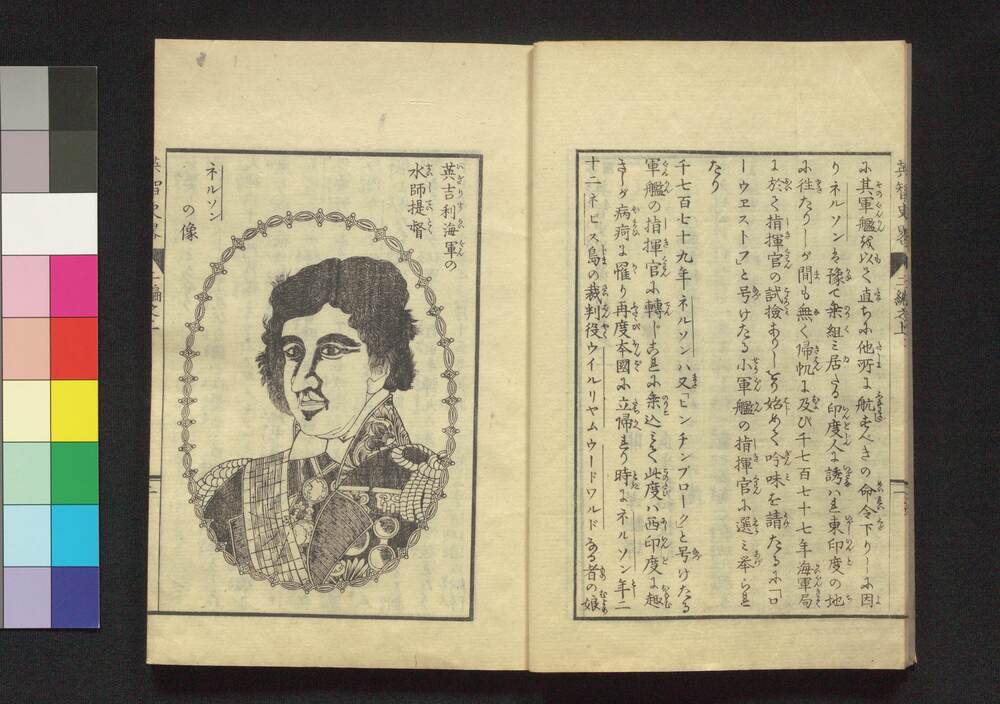 英智史畧 二編之上
に其軍艦を以て直ちに他所に航すべきの命令下りしに因
りネルソンは豫て乗組み居たる印度人に誘はれ東印度の地
に徃たりしが間も無く帰帆に及び千七百七十七年海軍局
に於て指揮官の試撿ありしより始めて吟味を請たるに「ロ
ーウヱストフ」と号けたる小軍艦の指揮官に選み挙られ
たり
千七百七十九年ネルソンハ又「ヒンチンブローク」と号けたる
軍艦の指揮官に轉じこれに乗込みて此度ハ西印度に趣
きしが病痾に罹り再度本國に立帰れり時にネルソン年二
十二ネビス島の裁判役ウイルリヤムウードワルドなる者の娘
英吉利海軍の
水師提督
ネルソン
の像